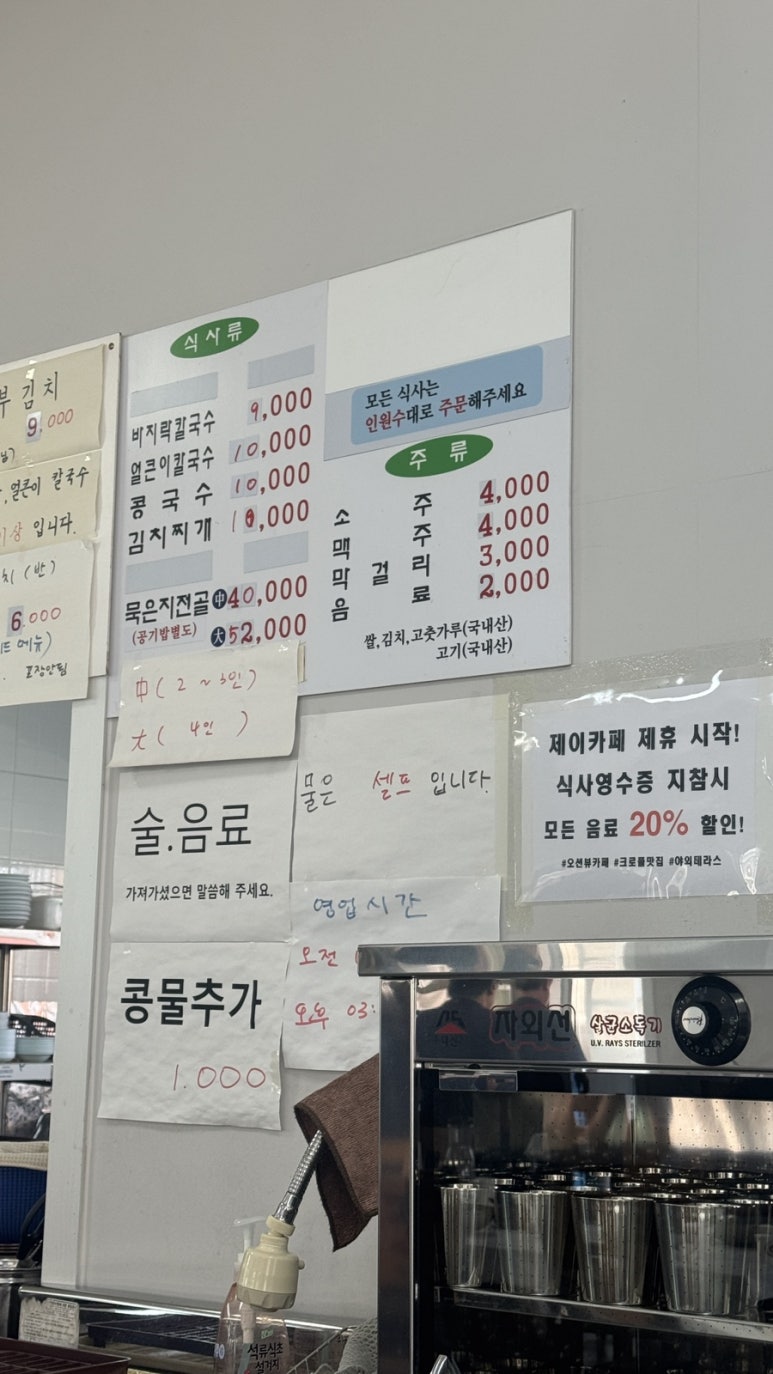 부 김치
9,000
얼큰이 칼국수
이상 입니다.
치 (반)
6,000
메뉴)
포장안됨
식사류
바지락칼국수 9,000
얼큰이칼국수 10,000
콩국수 10,000
김치찌개 10,000
묵은지전골 中 40,000
(공기밥별도) 大 52,000
모든 식사는
인원수대로 주문해주세요
주류
소주 4,000
맥주 4,000
막걸리 3,000
음료 2,000
쌀,김치,고춧가루(국내산)
고기(국내산)
中 ( 2 ~ 3인 )
大 ( 4인 )
술.음료
가져가셨으면 말씀해 주세요.
물은 셀프 입니다.
콩물추가
1.000
영업시간
오전
오후 03:
제이카페 제휴 시작!
식사영수증 지참시
모든 음료 20% 할인!
#오션뷰카페 #크로플맛집 #야외테라스
자외선 살균소독기
U.V. RAYS STERILZER
석류식초
설거지